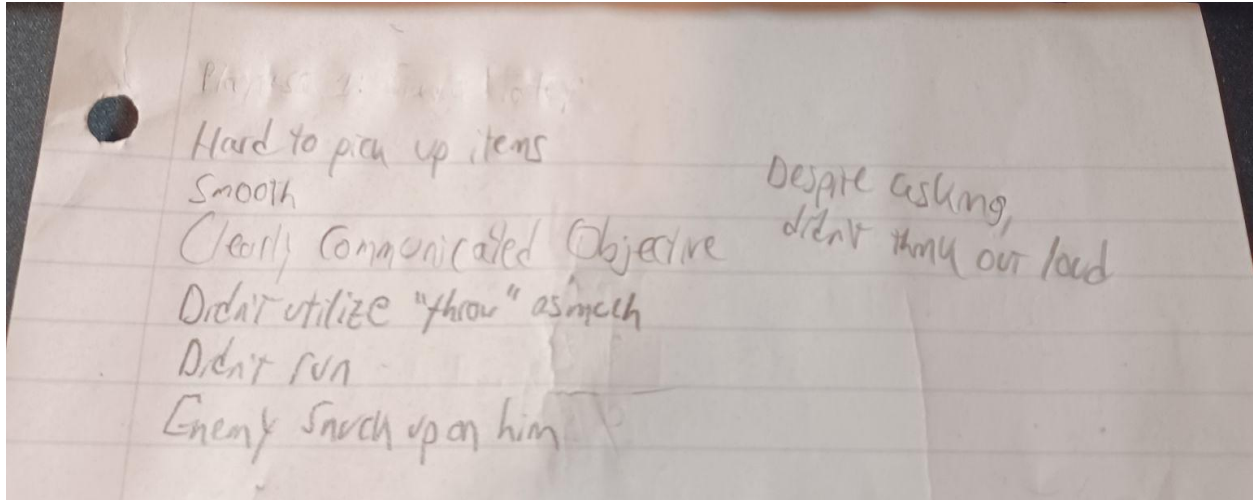 Hard to pick up items
Smooth
Clearly Communicated Objective
Didn't utilize "throw" as much
Didn't run
Enemy snuck up on him
Despite asking,
didn't think out loud